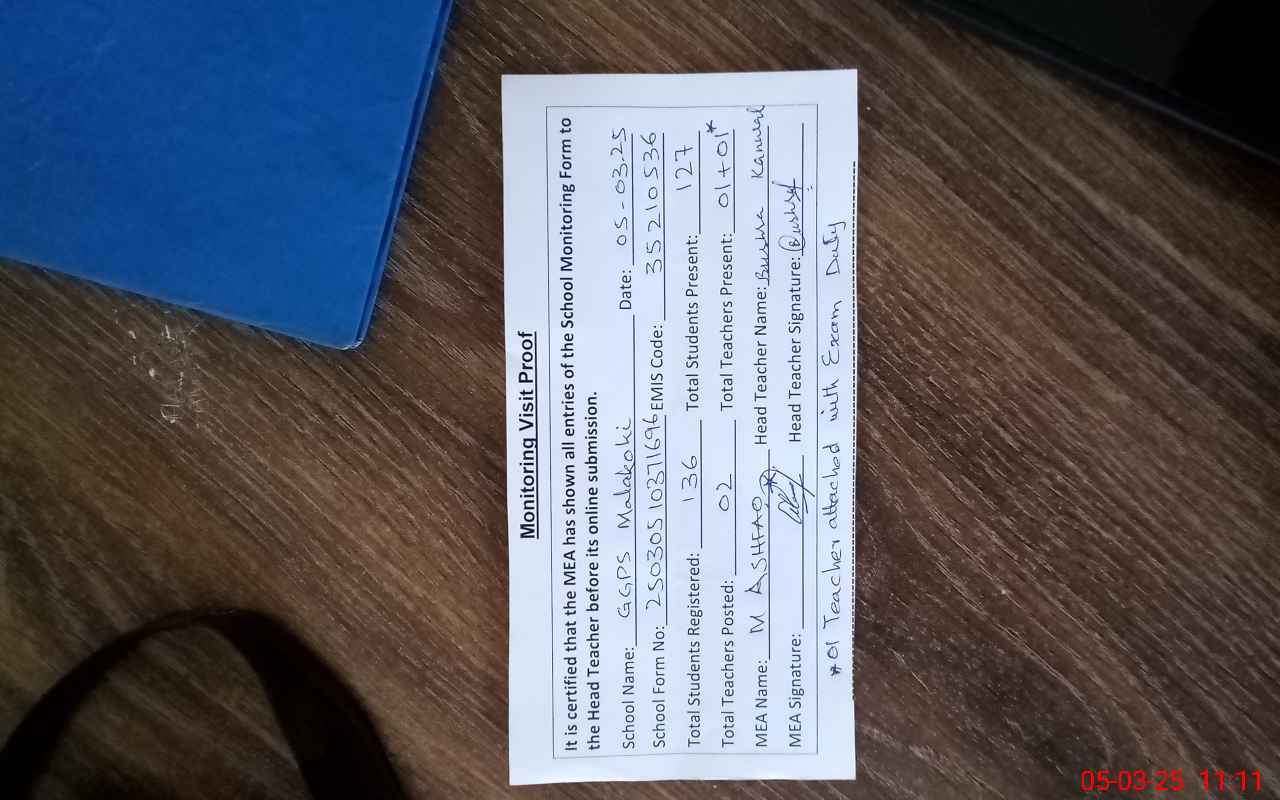 Monitoring Visit Proof
It is certified that the MEA has shown all entries of the School Monitoring Form to
the Head Teacher before its online submission.
School Name: GGPS Malakoki Date: 05-03.25
School Form No: 25030510371696 EMIS Code: 35210536
Total Students Registered: 136 Total Students Present: 127
Total Teachers Posted: 02 Total Teachers Present: 01+01*
MEA Name: M ASHFAQ Head Teacher Name: Bushra Kanwal
MEA Signature: Head Teacher Signature: Bushra
*01 Teacher attached with Exam Duty
05-03-25 11:11